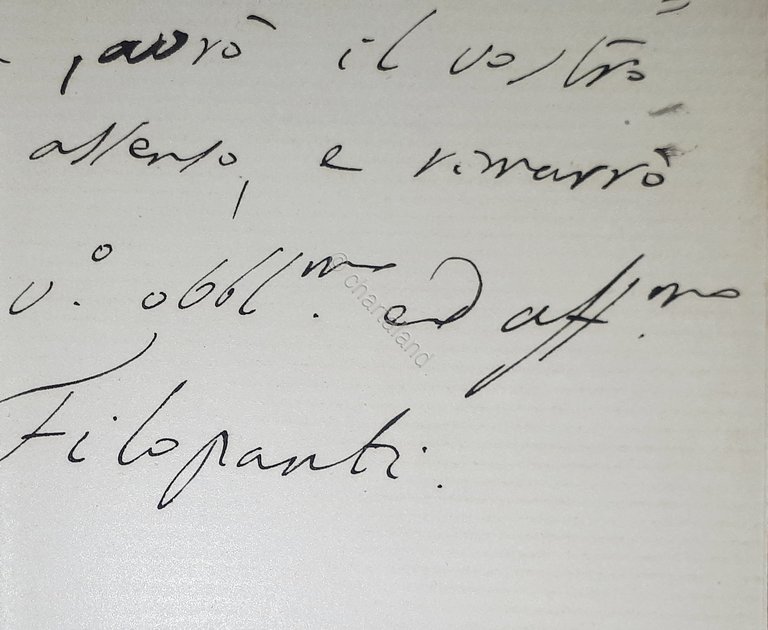 , avrò il vostro
assenso, e rimarrò
v.º obbl.mo ed aff.mo
Filopanti.
© chartaland